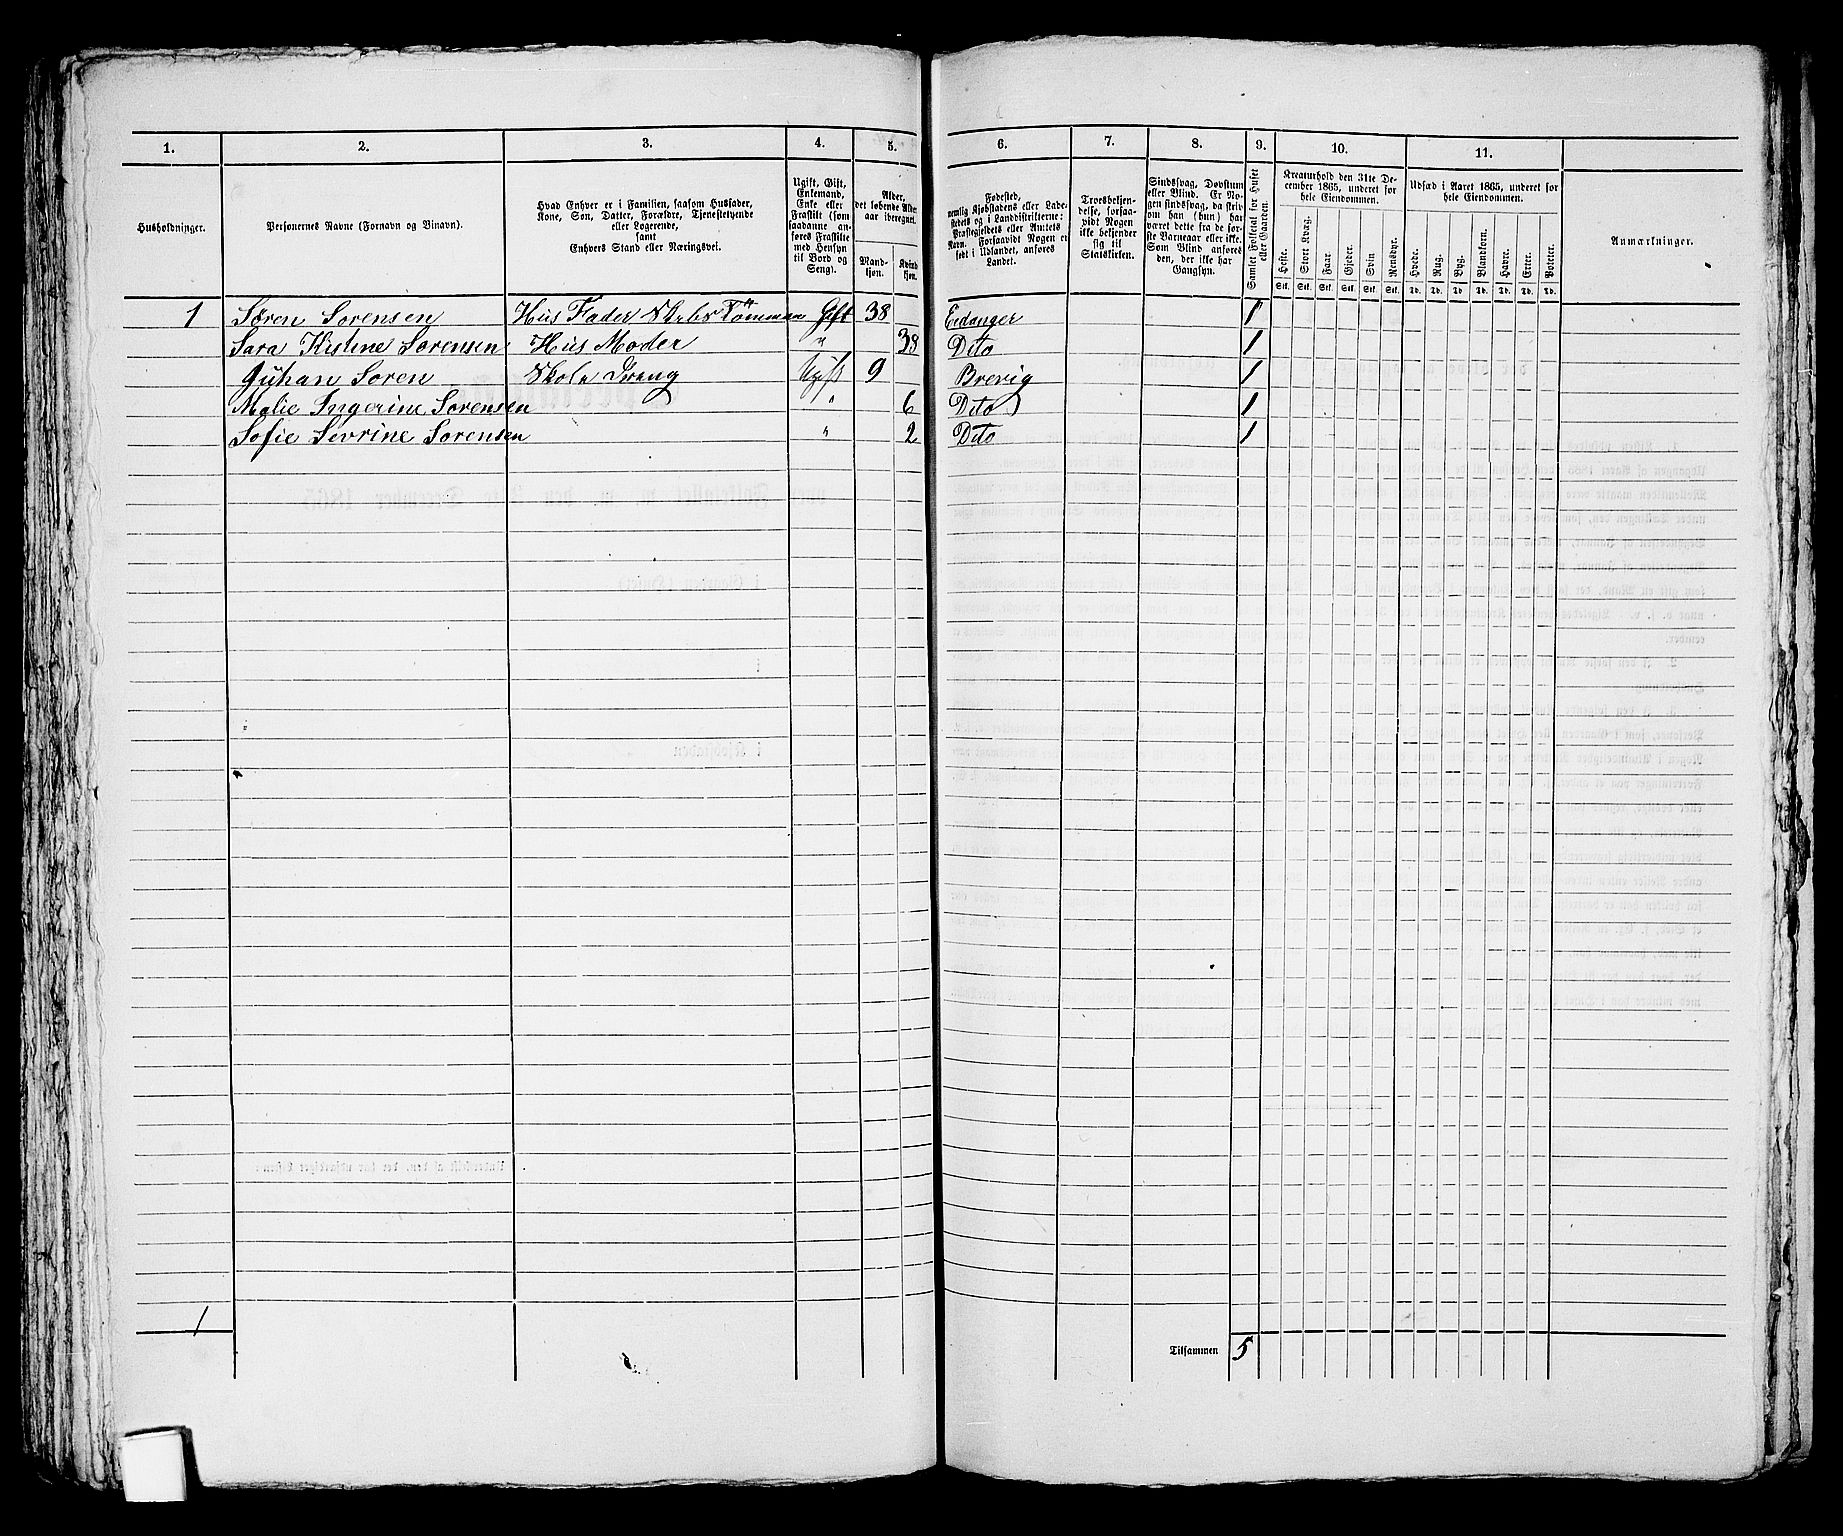 1. 2. 3. 4. 5. 6. 7. 8. 9. 10. 11.
Husholdninger.
Personernes Navne (Fornavn og Binavn).
Hvad Enhver er i Familien, saasom Husfader,
Kone, Søn, Datter, Forældre, Tjenestetyende
eller Logerende,
samt
Enhvers Stand eller Næringsvei.
Ugift, Gift,
Enkemand,
Enke eller
Fraskilt (som
saadanne an-
føres Fraskilte
med Hensyn
til Bord og
Seng).
Alder,
det løbende Alders-
aar iberegnet.
Mand-
kjøn.
Kvind
kjøn.
Fødested,
nemlig Kjøbstadens eller Lade-
stedets og i Landdistrikterne:
Præstegjeldets eller Amtets
Navn. Forsaavidt Nogen er
født i Udlandet, anføres
Landet.
Troesbekjen-
delse, forsaa-
vidt Nogen
ikke bekjender
sig til
Statskirken.
Sindssvag, Døvstum
eller Blind. Er No-
gen sindssvag, da skriv
om han (hun) har
været dette fra de før-
ste Barneaar eller ikke.
Som Blind anføres
den, der ikke har
Gangsyn.
Samlet Folketal for Huset
eller Gaarden.
Kreaturhold den 31te De-
cember 1865, underet for
hele Eiendommen.
Heste. Stort Kvæg. Faar. Gjeder. Svin Rensdyr.
Stk. Stk. Stk. Stk. Stk. Stk.
Udsæd i Aaret 1865, underet for
hele Eiendommen.
Hvede. Rug. Byg. Blandkorn. Havre. Erter. Poteter.
Td. Td. Td. Td. Td. Td. Td.
Anmærkninger.
1 Søren Sorensen Hus Fader Skibs Tømman Gift 38 Eidanger 1
Sara Kistine Sorensen Hus Moder " 38 Dito 1
Juhan Soren Skole Dreng Ugift 9 Brevig 1
Malie Ingerine Sorensen " 6 Dito 1
Sofie Sevrine Sorensen " 2 Dito 1
1 Tilsammen 5